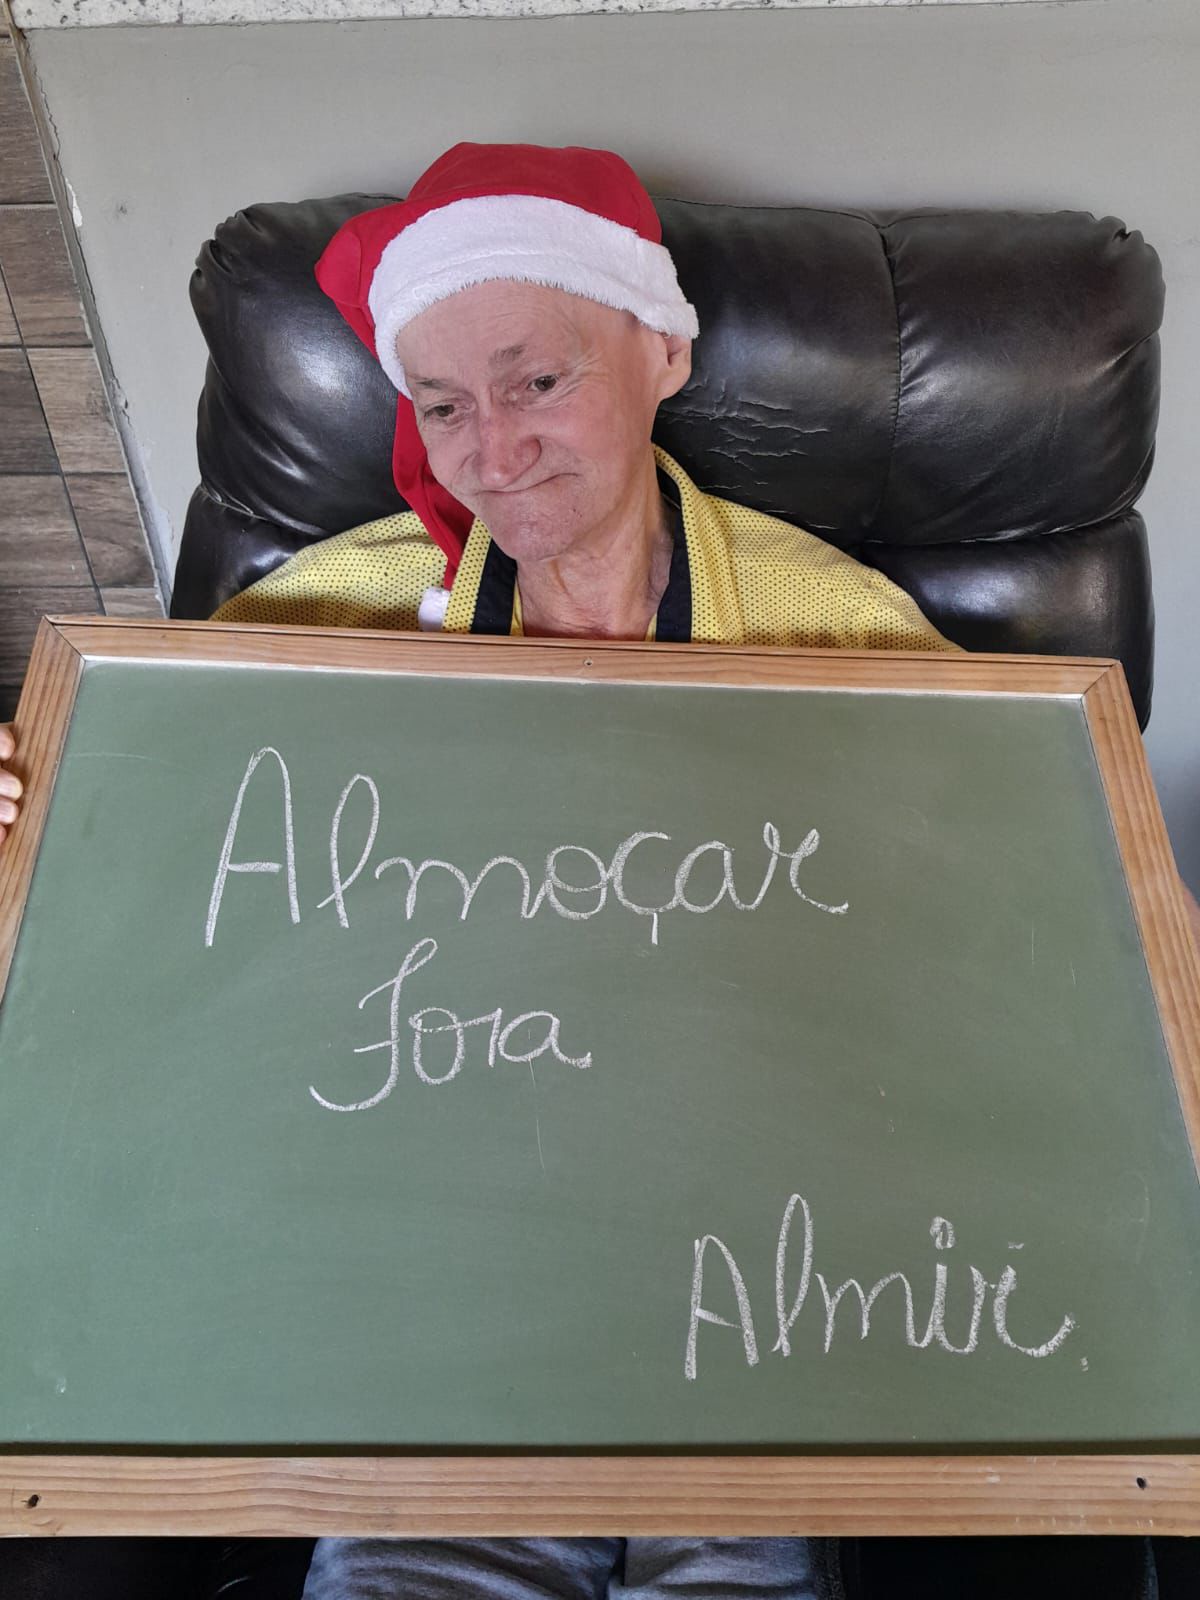 Almoçar
fora
Almir.